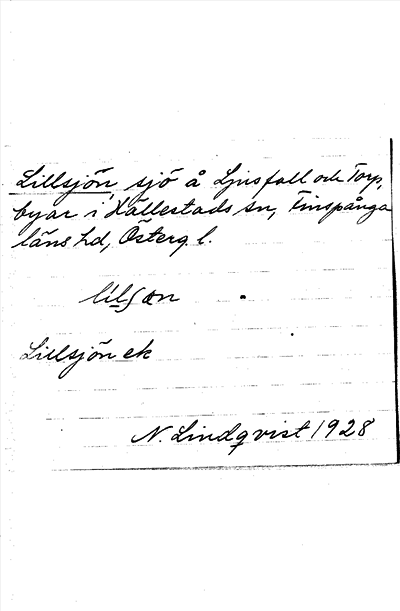 Lillsjön, sjö å Ljusfall och Torp,
byar i Hällestads sn, Finspånga
läns hd, Österg. l.
Lillsjön ek
N. Lindqvist 1928